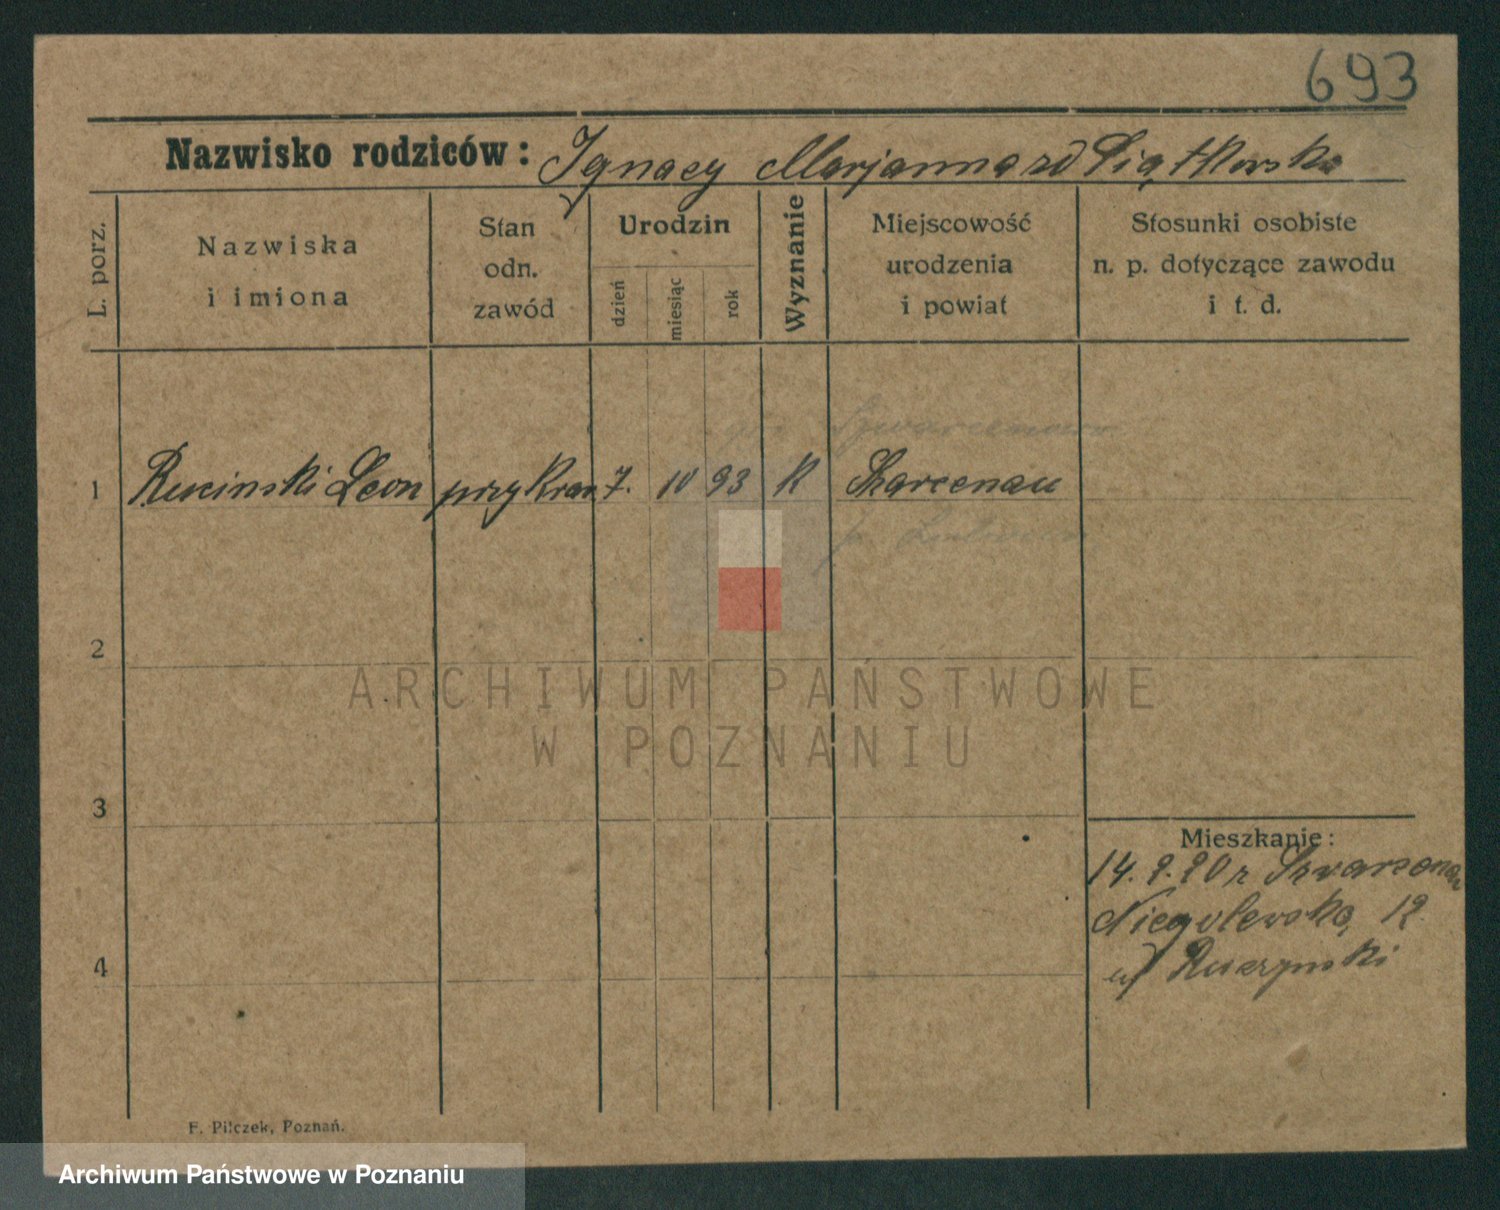 693
Nazwisko rodziców: Ignacy Marjanna zd Piątkowska
L. porz.
Nazwiska
i imiona
Stan
odn.
zawód
Urodzin
dzień
miesiąc
rok
Wyznanie
Miejscowość
urodzenia
i powiat
Stosunki osobiste
n. p. dotyczące zawodu
i t. d.
1 Rucinski Leon przykraw 7. 10 93 K
2
3
4
Mieszkanie:
14. 9. 20 z
Niegolewska, 12
Ruczynski
F. Pilczek, Poznań.
ARCHIWUM PAŃSTWOWE
W POZNANIU
Archiwum Państwowe w Poznaniu